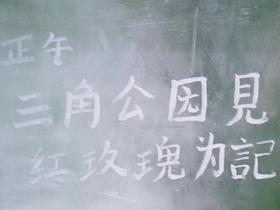 正午
三角公园見
红玫瑰为記